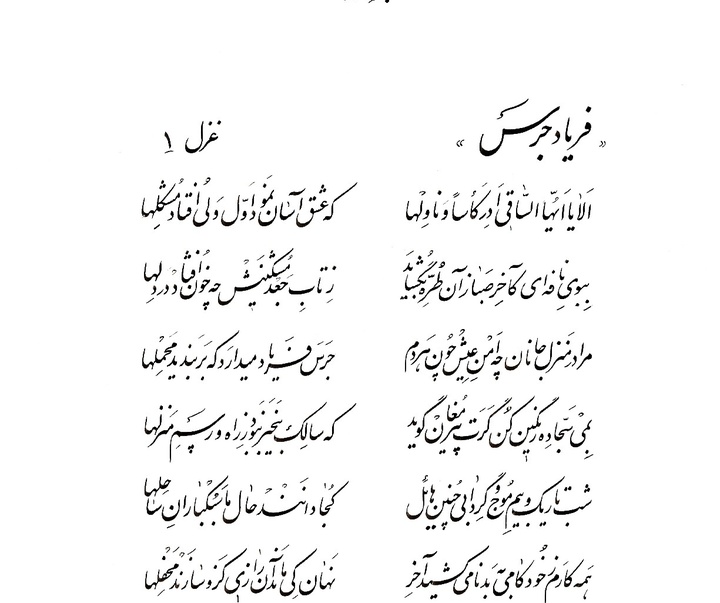 «فریاد جرس» غزل ۱
اَلا یا اَیُّهَا السّاقی اَدِر کَأساً وَ ناوِلها که عشق آسان نمود اوّل ولی افتاد مشکلها
ببوی نافه‌ای کآخر صبا زان طرّه بگشاید ز تاب جعد مشکینش چه خون افتاد در دلها
مرا در منزل جانان چه امن عیش چون هر دم جرس فریاد میدارد که بربندید محملها
بمی سجّاده رنگین کن گرت پیر مغان گوید که سالک بیخبر نبود ز راه و رسم منزلها
شب تاریک و بیم موج و گردابی چنین هایل کجا دانند حال ما سبکباران ساحلها
همه کارم ز خود کامی به بدنامی کشید آخر نهان کی ماند آن رازی کزو سازند محفلها